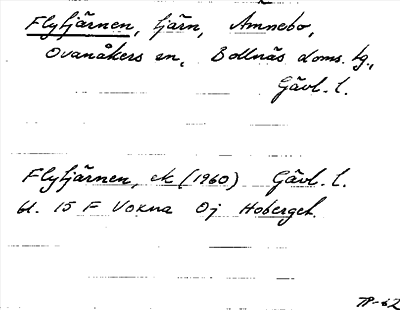 Flytjärnen, tjärn, Ämnebo,
Ovanåkers sn, Bollnäs doms. tg.,
Gävl. l.
Flytjärnen, ek (1960) Gävl. l.
bl. 15 F Voxna Oj Hoberget.
TP-62